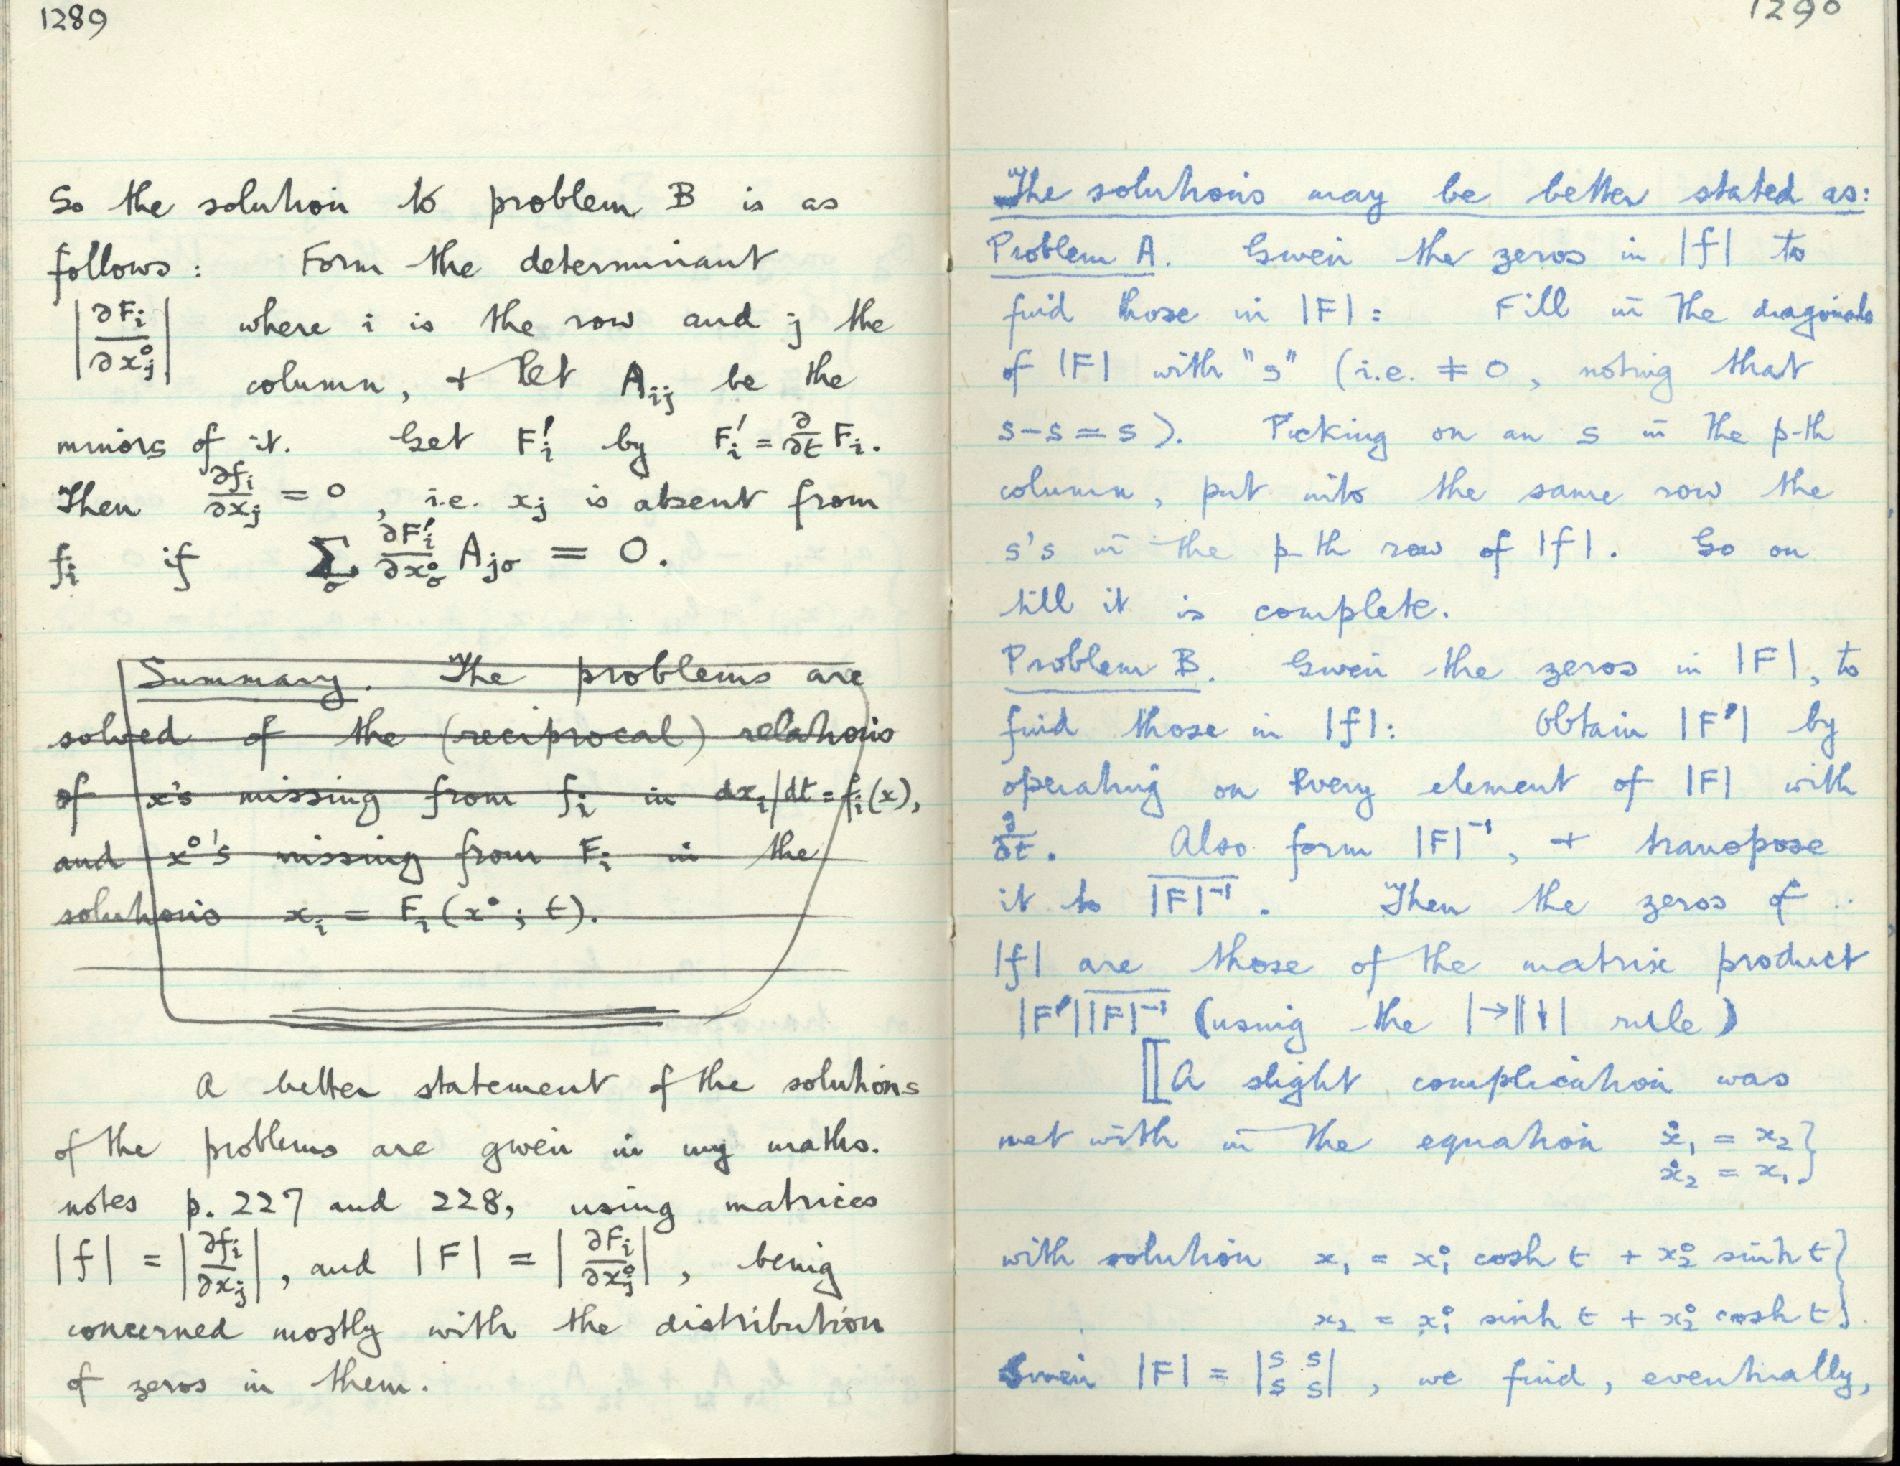 1289
So the solution to problem B is as
follows: Form the determinant
|∂Fi/∂xj°| where i is the row and j the
column, + let Aij be the
minors of it. Get Fi' by Fi' = ∂/∂t Fi.
Then ∂fi/∂xj = 0, i.e. xj is absent from
fi if Σσ ∂Fi'/∂xσ° Ajσ = 0.
Summary. The problems are
solved of the (reciprocal) relations
of x's missing from fi in dxi/dt = fi(x),
and x°'s missing from Fi in the
solutions xi = Fi(x°; t).
A better statement of the solutions
of the problems are given in my maths.
notes p. 227 and 228, using matrices
|f| = |∂fi/∂xj|, and |F| = |∂Fi/∂xj°|, being
concerned mostly with the distribution
of zeros in them.
1290
The solutions may be better stated as:
Problem A. Given the zeros in |f| to
find those in |F|: Fill in the diagonals
of |F| with "s" (i.e. ≠ 0, noting that
s-s = s). Picking on an s in the p-th
column, put into the same row the
s's in the p-th row of |f|. Go on
till it is complete.
Problem B. Given the zeros in |F|, to
find those in |f|: Obtain |F'| by
operating on every element of |F| with
∂/∂t. Also form |F|⁻¹, + transpose
it to \overline{|F|⁻¹}. Then the zeros of
|f| are those of the matrix product
|F'|\overline{|F|⁻¹} (using the |→||↓| rule)
[[A slight complication was
met with in the equation ẋ₁ = x₂}
ẋ₂ = x₁}
with solution x₁ = x₁° cosh t + x₂° sinh t}
x₂ = x₁° sinh t + x₂° cosh t}.
Given |F| = |s s
s s|, we find, eventually,